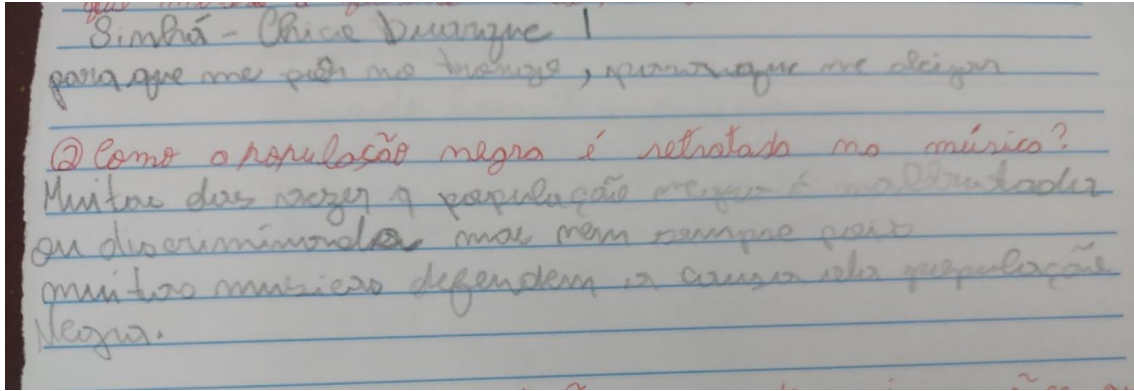 Sinhá - Chico Buarque
para que me pôr no tronco, para que me aleijar
② Como a população negra é retratada na música?
Muitas das vezes a população negra é maltratada
ou discriminada mas nem sempre pois
muitas musicas defendem a causa da população
Negra.